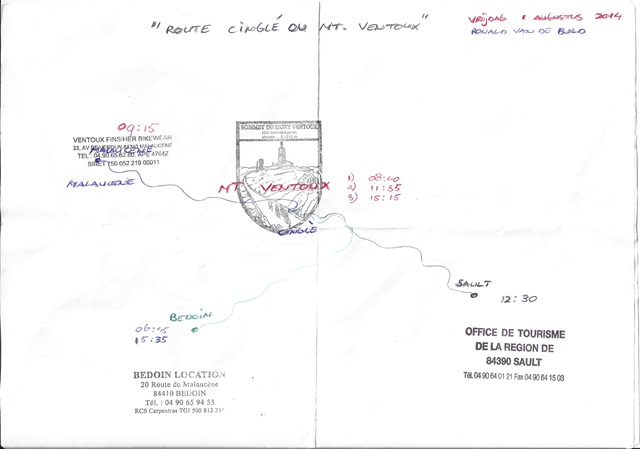 "ROUTE CINGLÉ DU MT. VENTOUX"
VRIJDAG 1 AUGUSTUS 2014
RONALD VAN DE
09:15
VENTOUX FINSIHER BIKEWEAR
22, AV DE VERDUN 84340 MALAUCENE
MALAUCENE
TEL: 04.90.65.62.80. APE 4764Z
SIRET 750 052 219 00011
MALAUCENE
SOMMET DU MONT VENTOUX
MT. VENTOUX
1) 08:40
2) 11:35
3) 15:15
CINGLÉ
SAULT
12:30
BEDOIN
06:45
15:35
OFFICE DE TOURISME
DE LA REGION DE
84390 SAULT
Tél. 04 90 64 01 21 Fax 04 90 64 15 03
BEDOIN LOCATION
20 Route de Malaucène
84410 BEDOIN
Tél. : 04 90 65 94 53
RCS Carpentras TGI 500 812